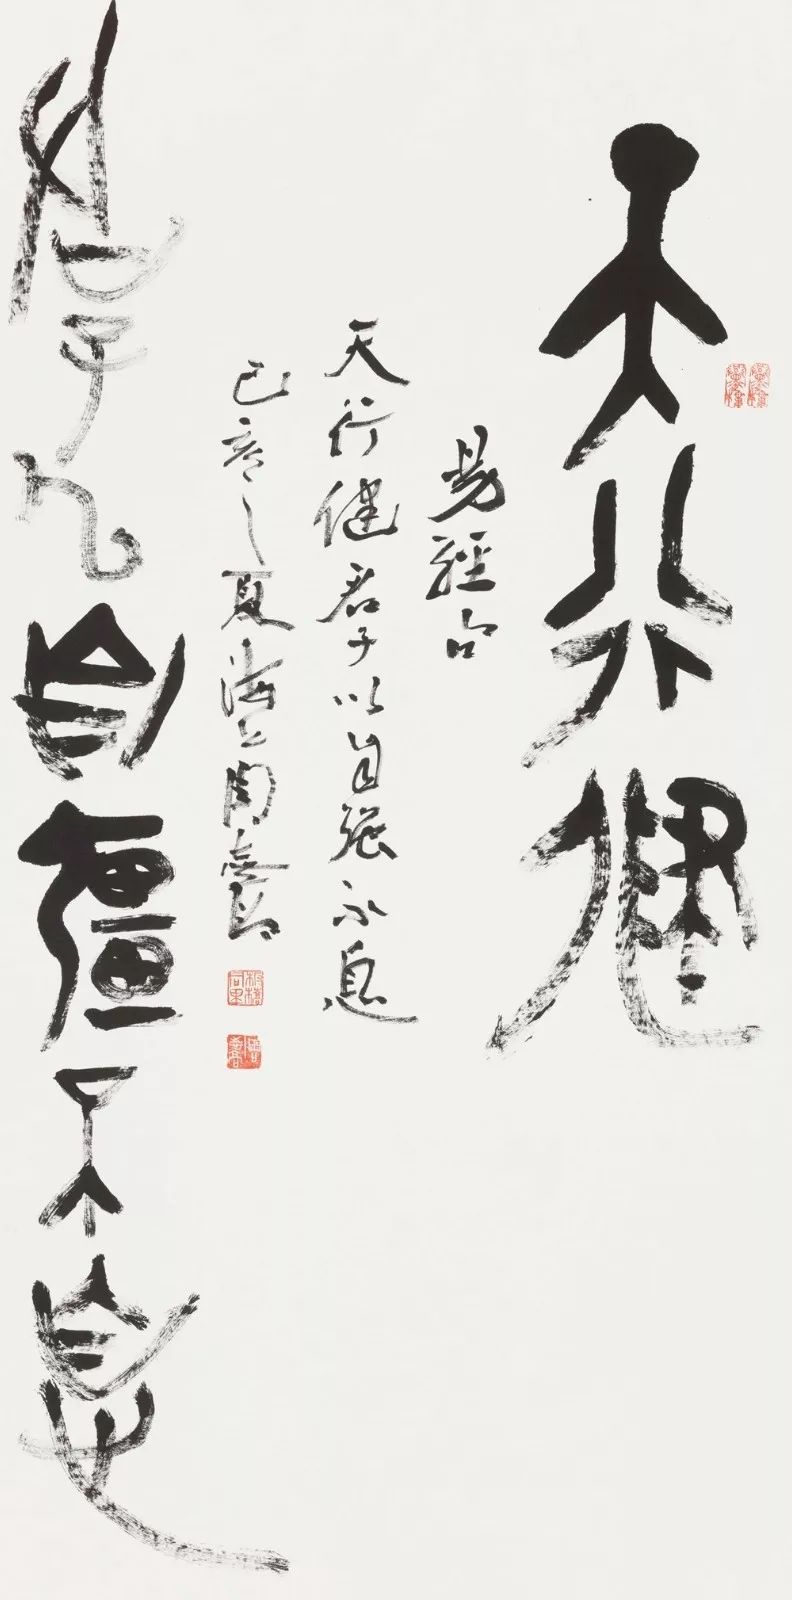 天行健
易經句
天行健君子以自強不息
己亥之夏海上
君子以自彊不息